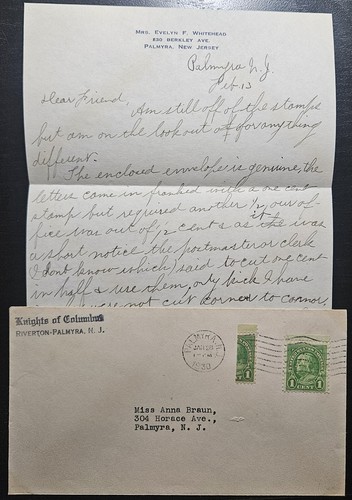 MRS. EVELYN F. WHITEHEAD
830 BERKLEY AVE.
PALMYRA, NEW JERSEY
Palmyra N.J.
Feb. 13
Dear Friend,
Am still off of the stamps
but am on the lookout for anything
different.
The enclosed envelope is genuine, the
letters came in franked with a one cent
stamp but required another 1/2, our of-
fice was out of 1/2 cents as it was
a short notice the postmaster or clerk
(I dont know which) said to cut one cent
in half & use them, only luck I have
were not cut corner to corner.
Knights of Columbus
RIVERTON-PALMYRA, N. J.
PALMYRA, N.J.
JAN 28
1930
1
1 CENT 1
Miss Anna Braun,
304 Horace Ave.,
Palmyra, N. J.